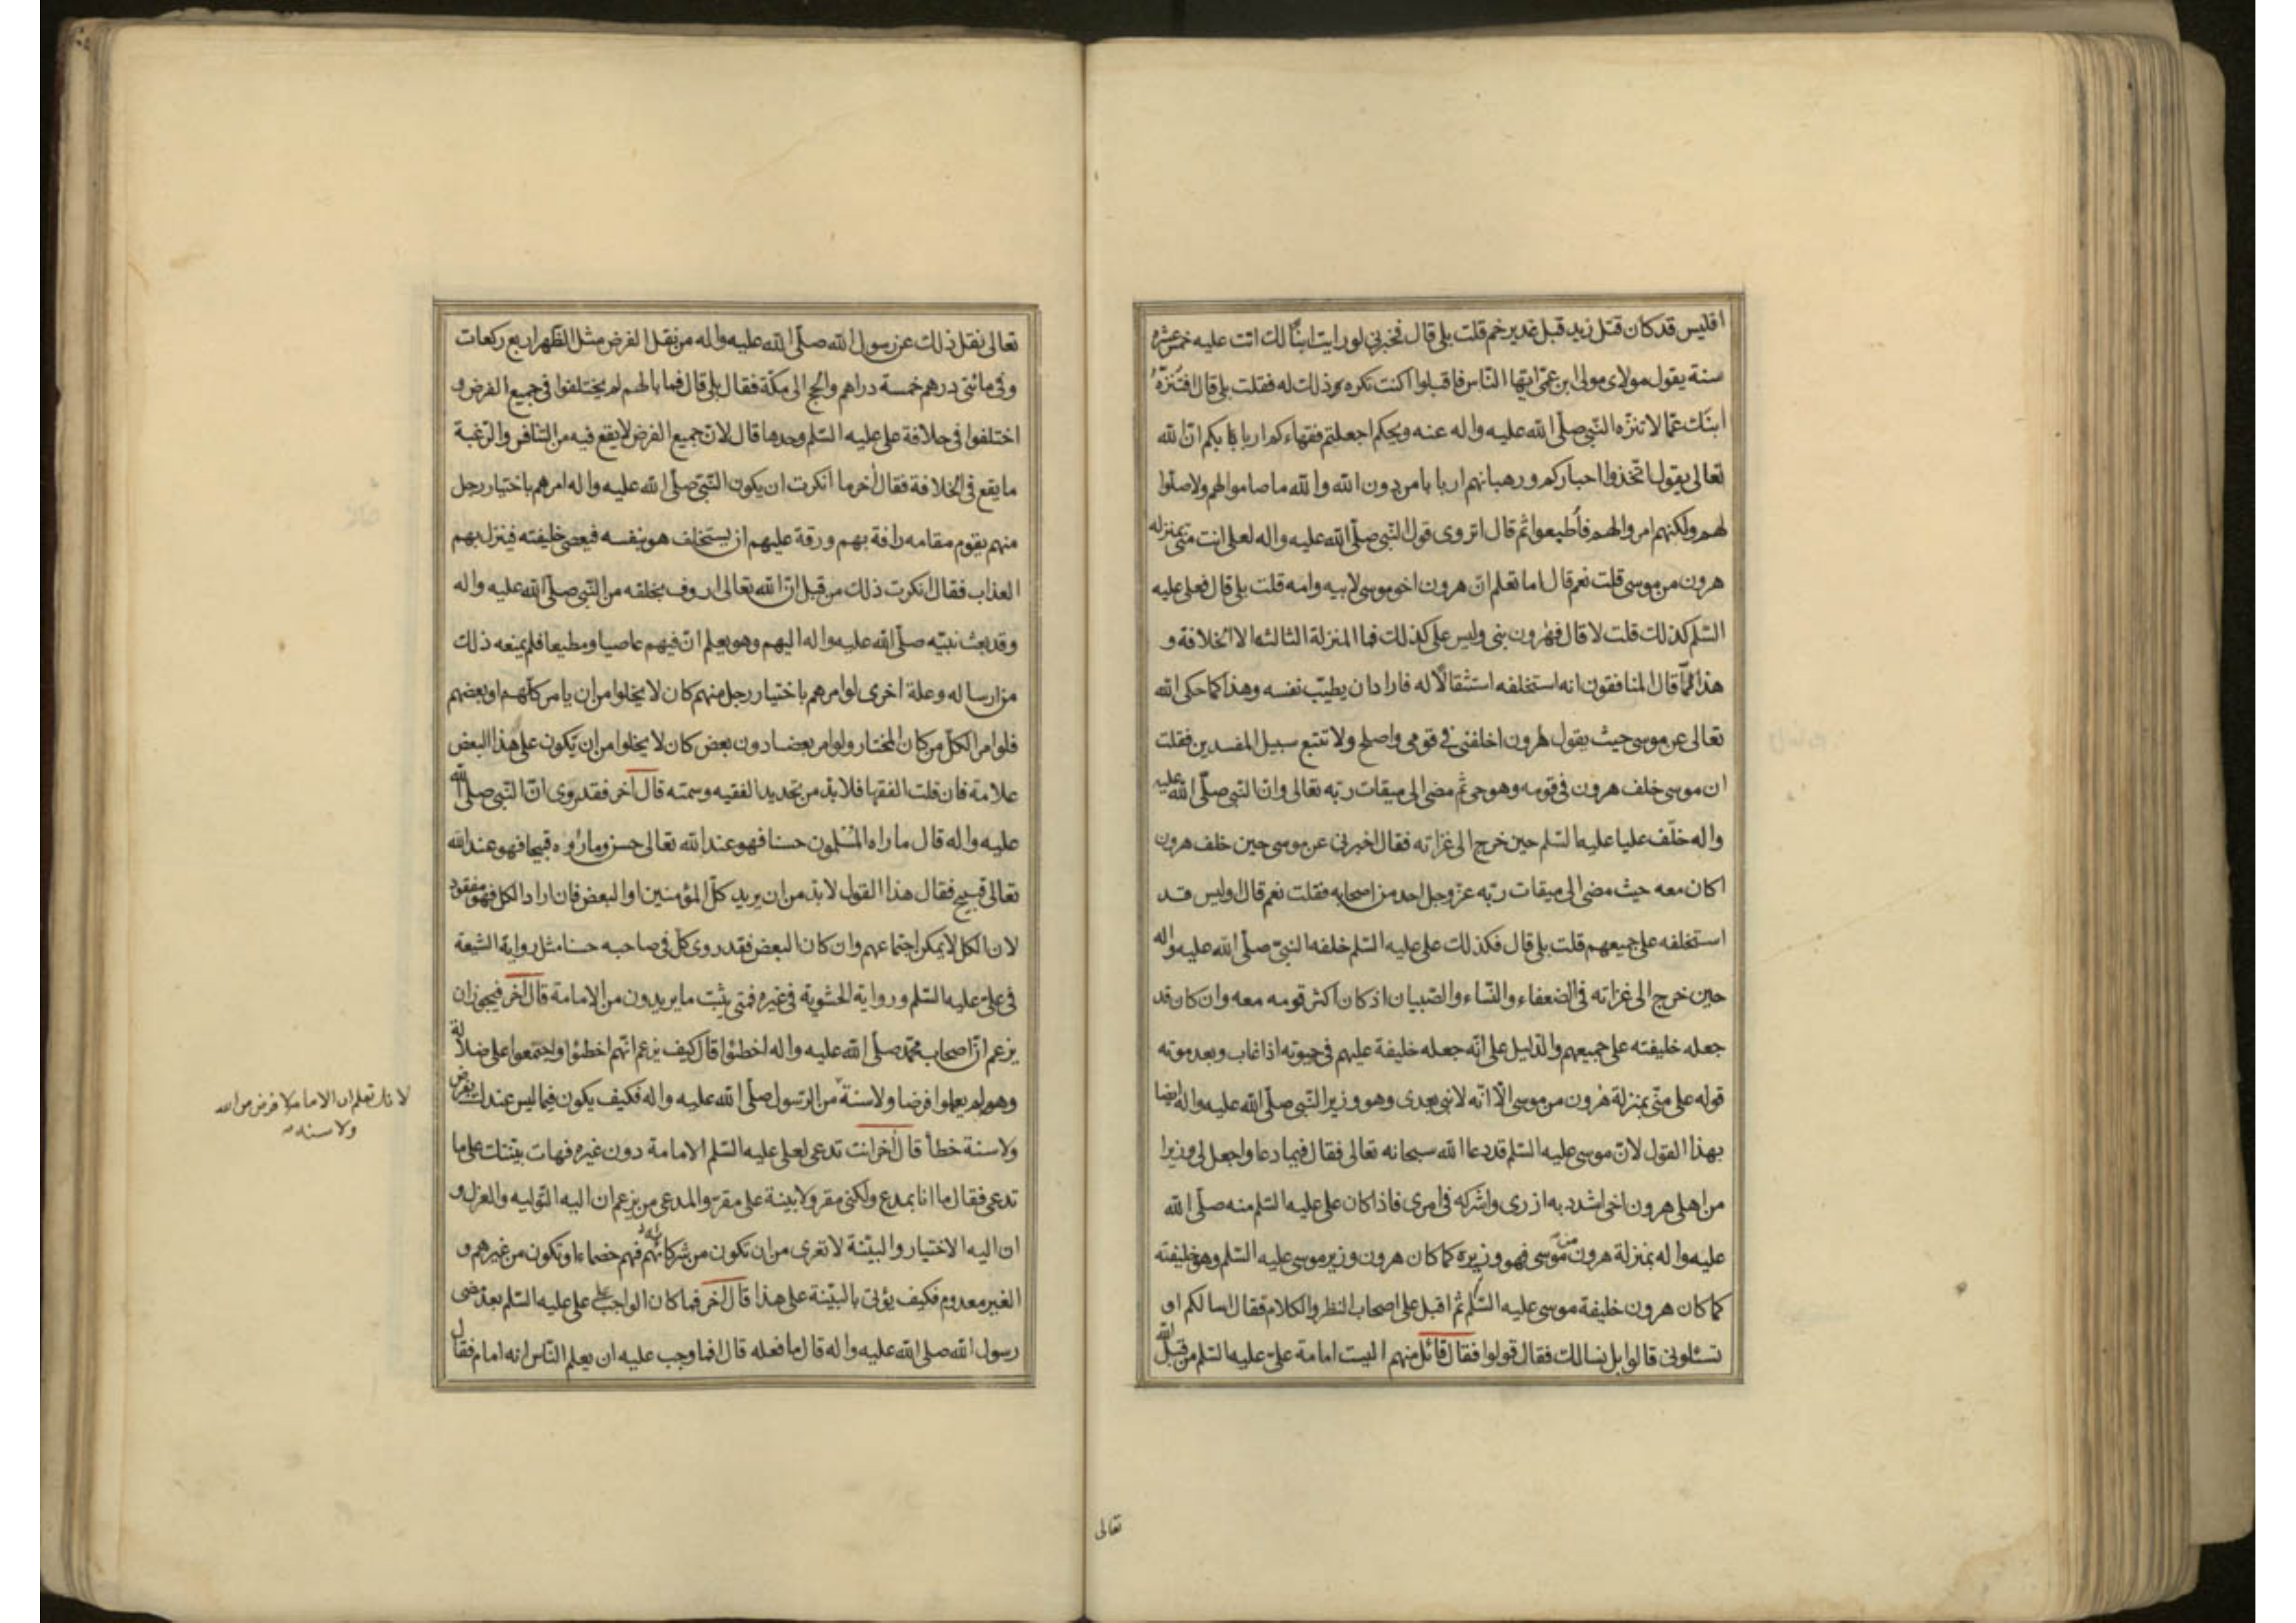 افليس قد كان قتل زيد قبل غدير خم قلت بلى قال فخبرني لو رايت ابنًا لك اتت عليه خمس عشرة
سنة يقول مولاى مولى ابن عمّى ايّها النّاس فاقبلوا اكنت تكره ذلك له فقلت بلى قال افتنزّه
ابنك عمّا لا تنزّه النّبي صلّى الله عليه واله عنه ويحكم اجعلتم فقهاءكم اربابكم انّ الله
تعالى يقول اتّخذوا احباركم ورهبانهم اربابا من دون الله والله ما صاموا لهم ولا صلّوا
لهم ولكنهم امروا لهم فأطيعوا ثم قال اتروى قول النّبي صلّى الله عليه واله لعلى انت منّى بمنزله
هرون من موسى قلت نعم قال اما تعلم انّ هرون اخو موسى لابيه وامه قلت بلى قال فعلى عليه
السّلم كذلك قلت لا قال فهٰرون نبى وليس على كذلك فما المنزلة الثالثه الا الخلافة و
هذا كما قال المنافقون انه استخلفه استثقالًا له فاراد ان يطيّب نفسه وهذا كما حكى الله
تعالى عن موسى حيث يقول لهرون اخلفنى فى قومى واصلح ولا تتبع سبيل المفسدين فقلت
ان موسى خلف هرون فى قومه وهو حى ثم مضى الى ميقات ربّه تعالى وانّ النّبي صلّى الله عليه
واله خلّف عليا عليه السّلم حين خرج الى غزاته فقال اخبرنى عن موسى حين خلف هرون
اكان معه حيث مضى الى ميقات ربّه عزّ وجل احد من اصحابه فقلت نعم قال اوليس قد
استخلفه على جميعهم قلت بلى قال فكذلك على عليه السّلم خلفه النبىّ صلّى الله عليه واله
حين خرج الى غزاته فى الضعفاء والنّساء والصّبيان اذ كان اكثر قومه معه وان كان قد
جعله خليفته على جميعهم والدّليل على انّه جعله خليفة عليهم فى حيوته اذا غاب وبعد موته
قوله على منّى بمنزلة هٰرون من موسى الّا انّه لا نبى بعدى وهو وزير النّبى صلّى الله عليه واله ايضا
بهذا القول لانّ موسى عليه السّلم قد دعا الله سبحانه تعالى فقال فيما دعا واجعل لى وزيرا
من اهلى هرون اخى اشدد به ازرى واشركه فى امرى فاذا كان على عليه السّلم منه صلّى الله
عليه واله بمنزلة هرون من موسى فهو وزيره كما كان هرون وزير موسى عليه السّلم وهو خليفته
كما كان هرون خليفة موسى عليه السّلم ثم اقبل على اصحاب النظر والكلام فقال اسالكم او
تسئلونى قالوا بل نسالك فقال قولوا فقال قائل منهم اليست امامة علىّ عليه السّلم من قبل الله
تعالى
تعالى نقل ذلك عن رسول الله صلّى الله عليه واله من نقل الفرض مثل الظّهر اربع ركعات
وفى مائتى درهم خمسة دراهم والحج الى مكّة فقال بلى قال فما بالهم لم يختلفوا فى جميع الفرض و
اختلفوا فى خلافة على عليه السّلم وحدها قال لانّ جميع الفرض لا يقع فيه من التنافس والرّغبة
ما يقع فى الخلافة فقال اخر ما انكرت ان يكون النّبىّ صلّى الله عليه واله امرهم باختيار رجل
منهم يقوم مقامه رافة بهم ورقة عليهم ان يستخلف هو بنفسه فيعصى خليفته فينزل بهم
العذاب فقال انكرت ذلك من قبل انّ الله تعالى اروف بخلقه من النّبى صلّى الله عليه واله
وقد بعث نبيّه صلّى الله عليه واله اليهم وهو يعلم انّ فيهم عاصيا ومطيعا فلم يمنعه ذلك
من ارساله وعلة اخرى لو امرهم باختيار رجل منهم كان لا يخلوا من ان يامر كلّهم او بعضهم
فلو امر الكلّ من كان المختار ولو امر بعضا دون بعض كان لا يخلوا من ان يكون على هذا البعض
علامة فان قلت الفقها فلا بدّ من تحديد الفقيه وسمته قال اخر فقد روى انّ النّبى صلّى الله
عليه واله قال ما راه المسلمون حسنا فهو عند الله تعالى حسن وما راوه قبيحا فهو عند الله
تعالى قبيح فقال هذا القول لا بدّ من ان يريد كلّ المؤمنين او البعض فان اراد الكل فهو مفقود
لان الكل لا يمكن اجتماعهم وان كان البعض فقد روى كلّ فى صاحبه حسنا مثل رواية الشيعة
فى علىّ عليه السّلم ورواية الحشوية فى غيره فمتى يثبت ما يريدون من الامامة قال اخر فيجوز ان
يزعم انّ اصحاب محمّد صلّى الله عليه واله اخطئوا قال كيف نزعم انّهم اخطئوا واجتمعوا على ضلالة
وهم لم يعلموا فرضا ولا سنة من الرّسول صلّى الله عليه واله فكيف يكون فيما ليس عندك بفرض
لانك تعلم ان الامامة لا فرض من الله
ولا سنة
ولا سنة خطأ قال اخر انت تدعى لعلى عليه السّلم الامامة دون غيره فهات بيّنتك على ما
تدعى فقال ما انا بمدع ولكنّى مقر ولا بينة على مقرّ والمدعى من يزعم ان اليه التّوليه والعزل و
ان اليه الاختيار والبيّنة لا تعرى من ان تكون من شركائهم فهم خصماء او تكون من غيرهم و
الغير معدوم فكيف يؤتى بالبيّنة على هذا قال اخر فما كان الواجب على على عليه السّلم بعد مضى
رسول الله صلى الله عليه واله قال ما فعله قال افما وجب عليه ان يعلم النّاس انه امام فقال